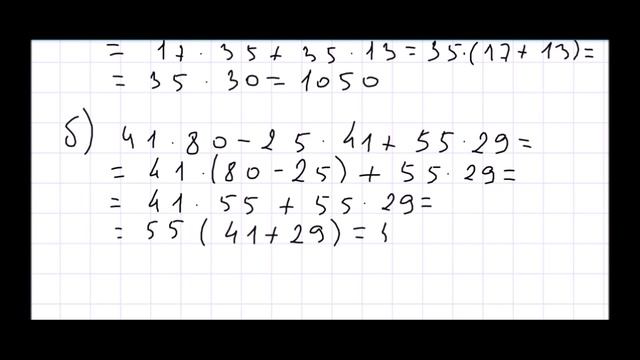 = 17 · 35 + 35 · 13 = 35·(17 + 13) =
= 35 · 30 = 1050
б) 41 · 80 - 25 · 41 + 55 · 29 =
= 41 · (80 - 25) + 55 · 29 =
= 41 · 55 + 55 · 29 =
= 55 ( 41 + 29) =